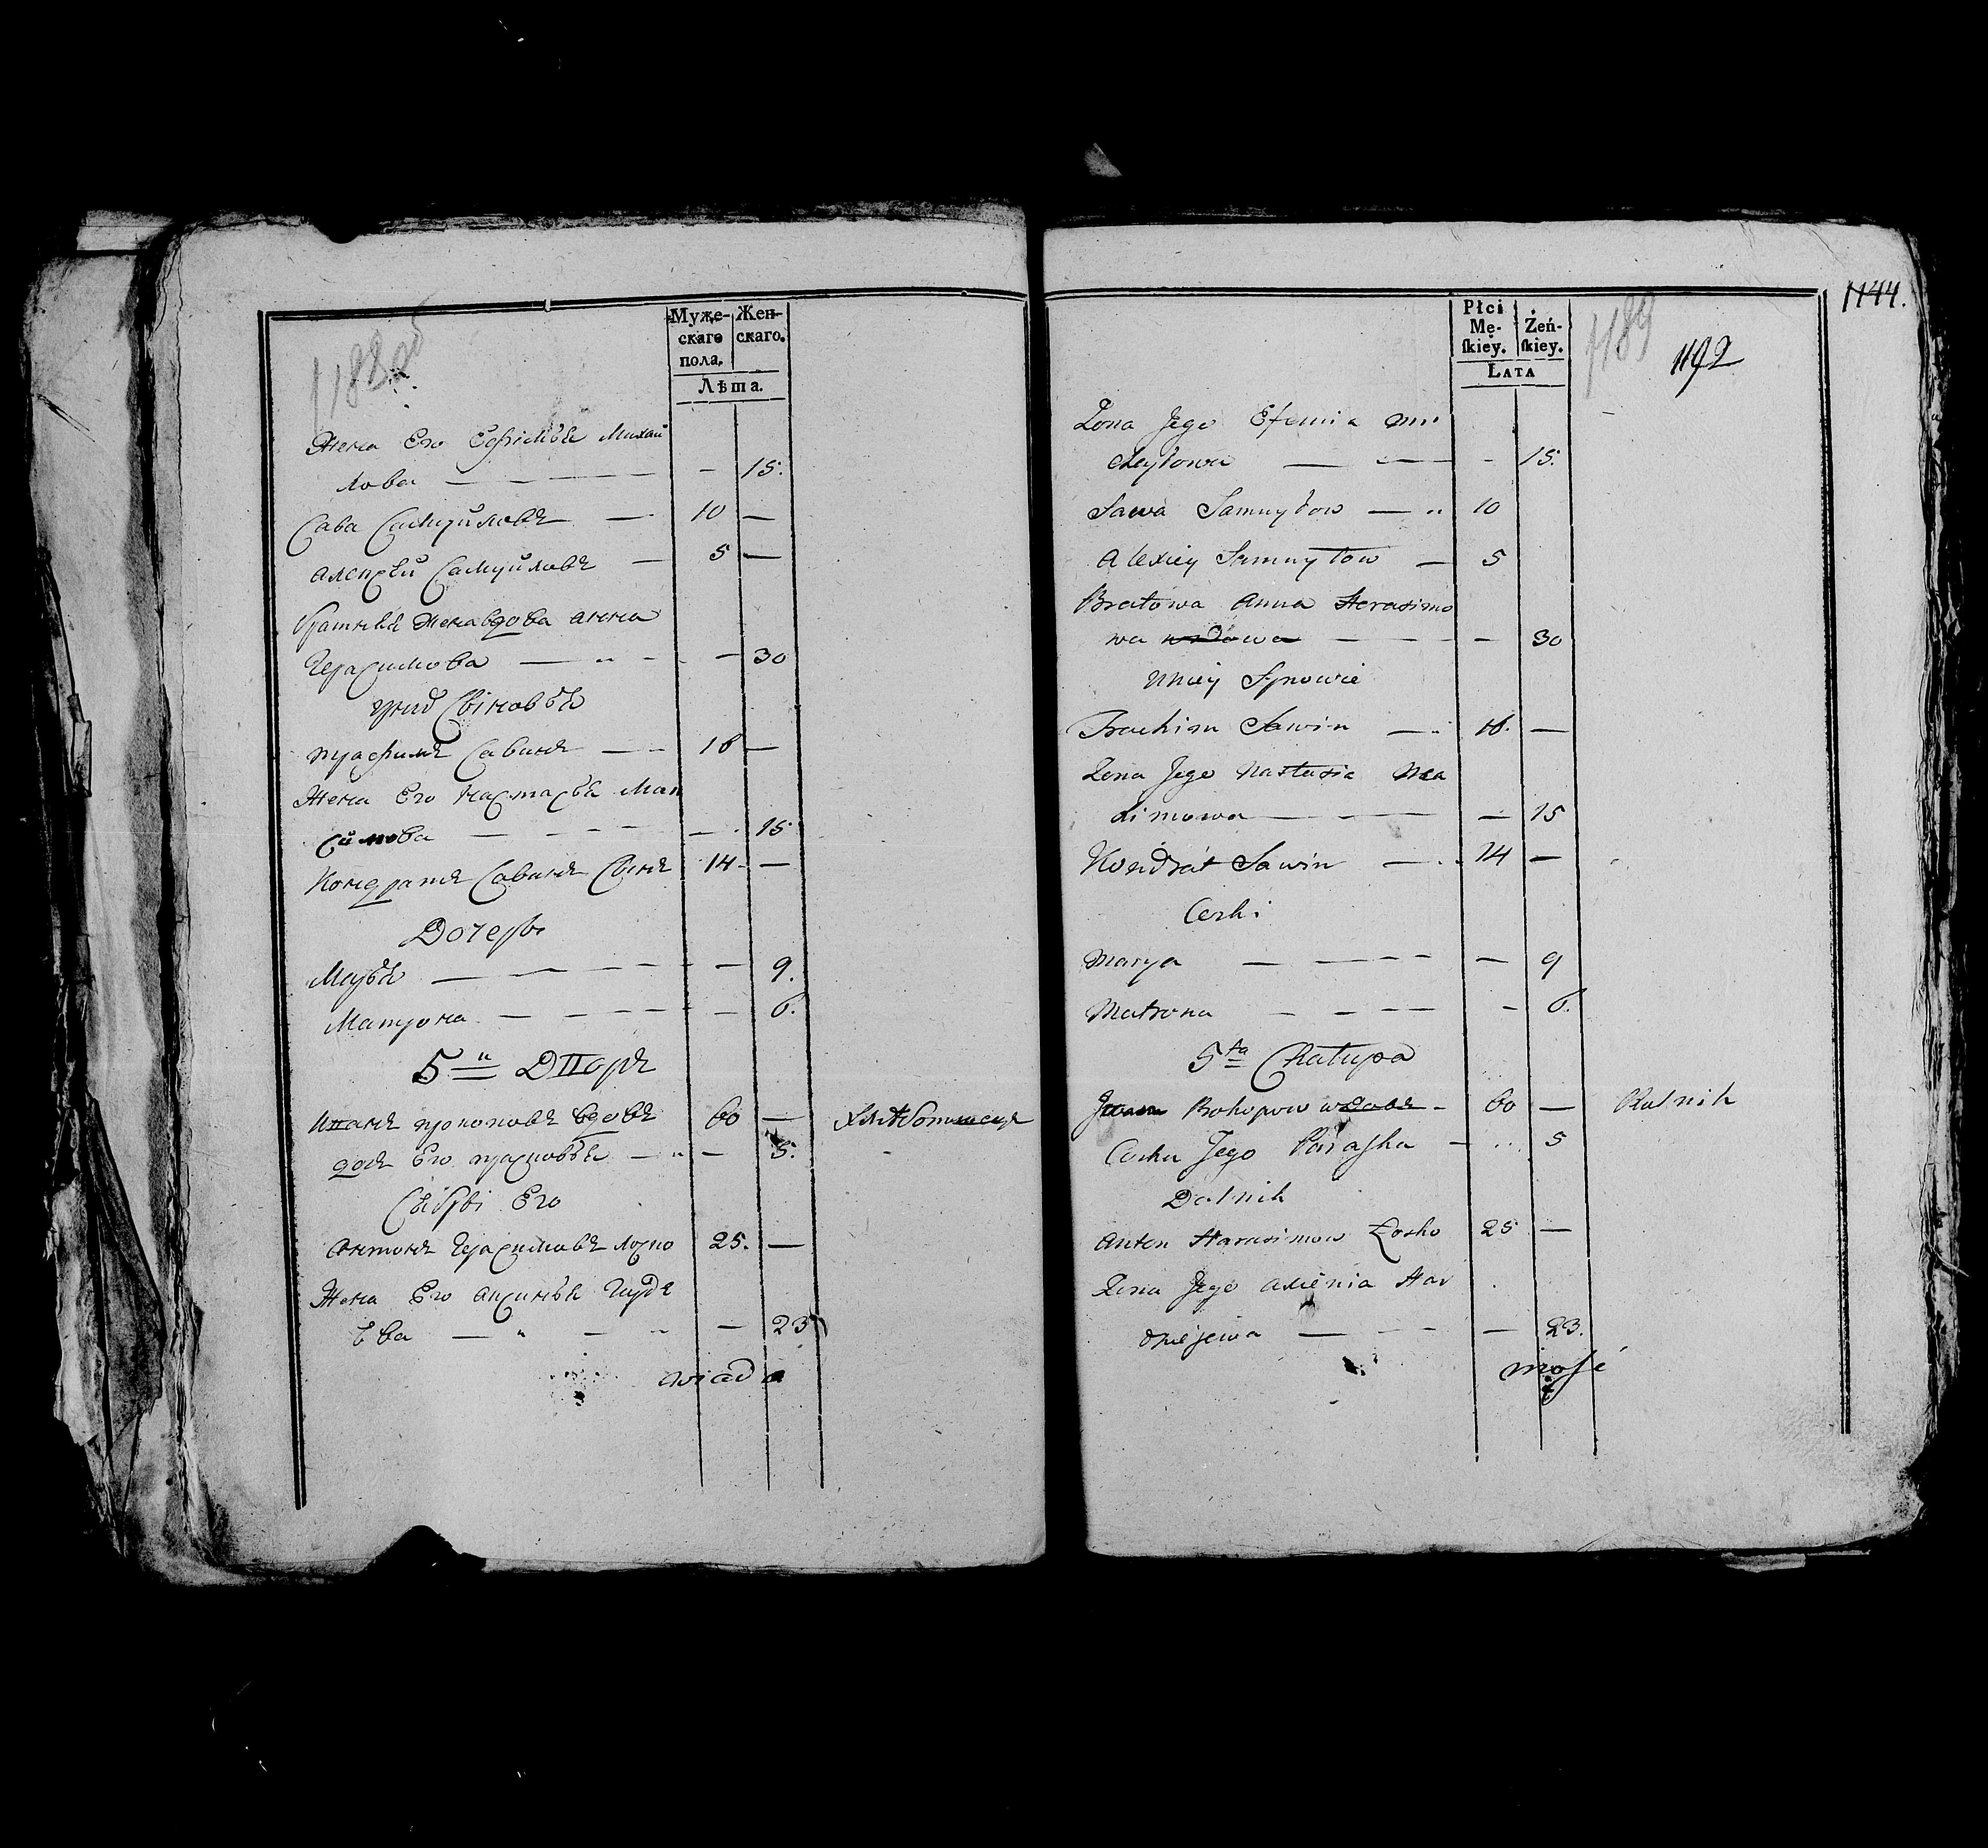 1188
Муже-
скаго
пола.
Жен-
скаго.
Лѣта.
Жена Его Ефимья Михай
лова — 15.
Сава Самуйловъ — 10 —
Алексѣй Самуйловъ — 5 —
Братняя Жена вдова Анна
Герасимова — 30
у ней Сыновья
Трафимъ Савинъ — 16 —
Жена Его Настасья Мак
симова — 15
Кондратъ Савинъ Сынъ 14 —
Дочери
Марья — 9.
Матрона — 6.
5й Дворъ
Иванъ Прокоповъ вдовъ 60 —
дочь Его — 5.
Его
Антонъ Герасимовъ Лоско 25. —
Жена Его Аксинья Гурдѣ
ева — 23
wiado
1144.
1189
1192
Płci
Mę-
ſkiey.
Żeń-
ſkiey.
Lata
Zona Jego Efemia Mi
chayłowa — 15.
Sawa Samuyłow — 10
Alexiey Samuyłow — 5
Bratowa Anna Herasimo
wa wdowa — 30
U niey Synowie
Trachim Sawin — 16. —
Zona Jego Nastasia Ma
ximowa — 15
Kondrat Sawin — 14 —
Corki
Marya — 9
Matrona — 6.
5ta Chałupa
Jwan Prokopow wdowa — 60 — Rolnik
Corka Jego Paraſka — 5
Anton Harasimow Łosko 25 —
Zona Jego Axienia Hor
dziejewa — 23.
mość